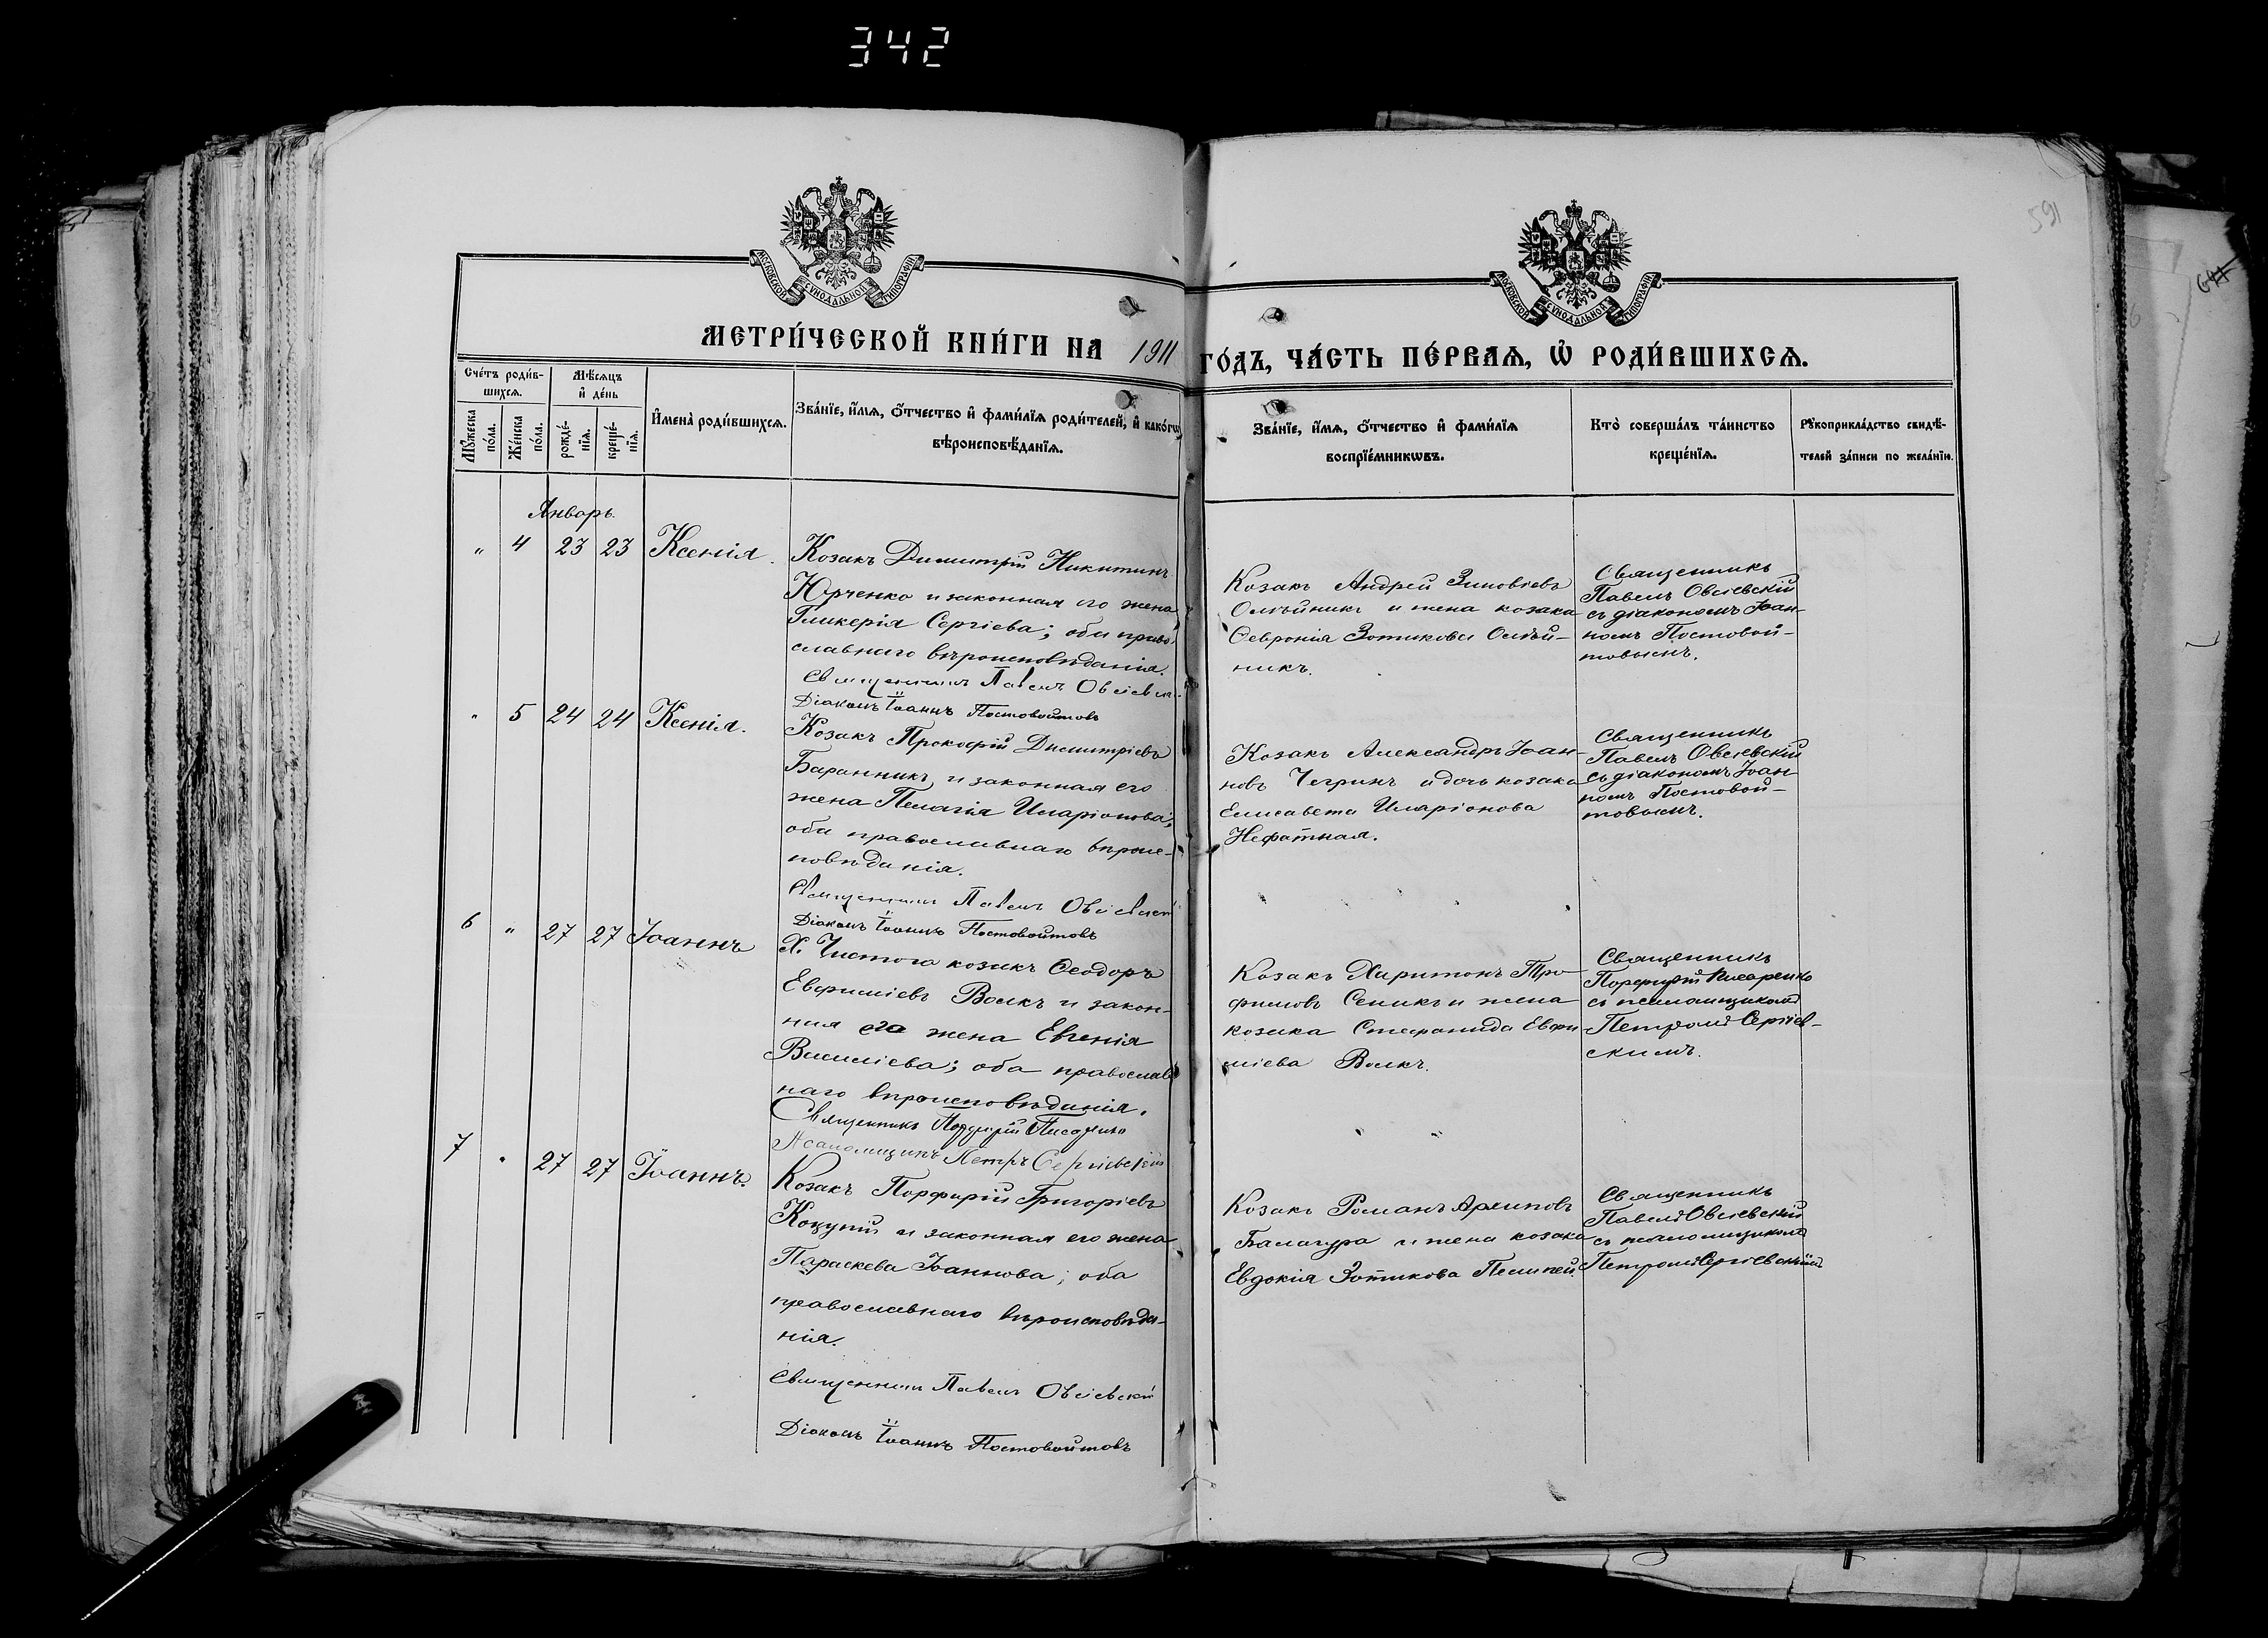 342
591
МОСКОВСКОЙ СѴНОДАЛЬНОЙ ТИПОГРАФІИ
МОСКОВСКОЙ СѴНОДАЛЬНОЙ ТИПОГРАФІИ
МЕТРИ́ЧЕСКОЙ КНИ́ГИ НА 1911 ГО́ДЪ, ЧА́СТЬ ПЕ́РВАѦ, Ѡ҆ РОДИ́ВШИХСѦ.
Сче́тъ роди́в-
шихсѧ.
Мꙋ́жеска
по́ла.
Же́нска
по́ла.
Мѣ́сѧцъ
и҆ де́нь
рожде́-
нїѧ.
креще́-
нїѧ.
И҆мена̀ роди́вшихсѧ.
Зва́нїе, и҆́мѧ, ѻ҆́тчество и҆ фами́лїѧ роди́телей, и҆ како́гѡ
вѣроисповѣ́данїѧ.
Зва́нїе, и҆́мѧ, ѻ҆́тчество и҆ фами́лїѧ
воспрїе́мникѡвъ.
Кто̀ соверша́лъ та́инство
креще́нїѧ.
Рꙋкоприкла́дство свидѣ́-
телей за́писи по жела́нїю.
Январь.
" 4 23 23 Ксенія.
Козакъ Димитрій Никитинъ
Юрченко и законная его жена
Гликерія Сергіева; оби право-
славнаго вѣроисповѣданія.
Священникъ Павелъ Овсіевскі
Діаконъ Іоаннъ Постовойтовъ
Козакъ Андрей Зиновіевъ
Олѣйникъ и жена козака
Февронія Зотикова Олѣй-
никъ.
Священникъ
Павелъ Овсіевскій
съ діакономъ Іоан-
номъ Постовой-
товымъ.
" 5 24 24 Ксенія.
Козакъ Прокофій Димитріевъ
Баранникъ и законная его
жена Пелагія Иларіонова;
оби православнаго вѣроис-
повѣданія.
Священникъ Павелъ Овсіевскій
Діаконъ Іоаннъ Постовойтовъ
Козакъ Александръ Іоан-
новъ Чегринъ и дочь козака
Елисавета Иларіонова
Нефатная.
Священникъ
Павелъ Овсіевскій
съ діакономъ Іоан-
номъ Постовой-
товымъ.
6 " 27 27 Іоаннъ
Х. Чистога козакъ Ѳеодоръ
Евфиміевъ Волкъ и закон-
ная его жена Евгенія
Василіева; оба православ
наго вѣроисповѣданія.
Священникъ Порфирій Писаренко
Псаломщикъ Петръ Сергіевскій
Козакъ Харитонъ Тро-
фимовъ Сеникъ и жена
козака Стефанида Евфи
міева Волкъ.
Священникъ
Порфирій Писаренко
съ псаломщикомъ
Петромъ Сергіев-
скимъ.
7 " 27 27 Іоаннъ.
Козакъ Порфирій Григоріевъ
Коцупій и законная его жена
Параскева Іоаннова; оба
православнаго вѣроисповѣда-
нія.
Священникъ Павелъ Овсіевскій
Діаконъ Іоаннъ Постовойтовъ
Козакъ Романъ Архиповъ
Балагура и жена козака
Евдокія Зотикова Пелипей.
Священникъ
Павелъ Овсіевскій
съ псаломщикомъ
Петромъ Сергіевскимъ